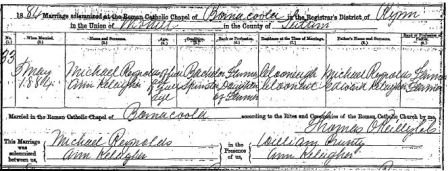 1884 Marriage solemnized at the Roman Catholic Chapel of Bornacoola in the Registrar's District of Rynn
in the Union of Mohill in the County of Leitrim
No. When Married. Name and Surname. Age. Condition. Rank or Profession. Residence at the Time of Marriage. Father's Name and Surname. Rank or Profession of Father.
33 May Michael Reynolds of full Bachelor Farmer Michael Reynolds Farmer
1884 Ann Keleigher of full Spinster Daughter Keleigher Farmer
age of Farmer
Married in the Roman Catholic Chapel of Bornacoola according to the Rites and Ceremonies of the Roman Catholic Church by me,
Thomas O'Reilly
This Marriage was solemnized between us, Michael Reynolds in the Presence of us, William
Ann Keleigher Ann Keleigher